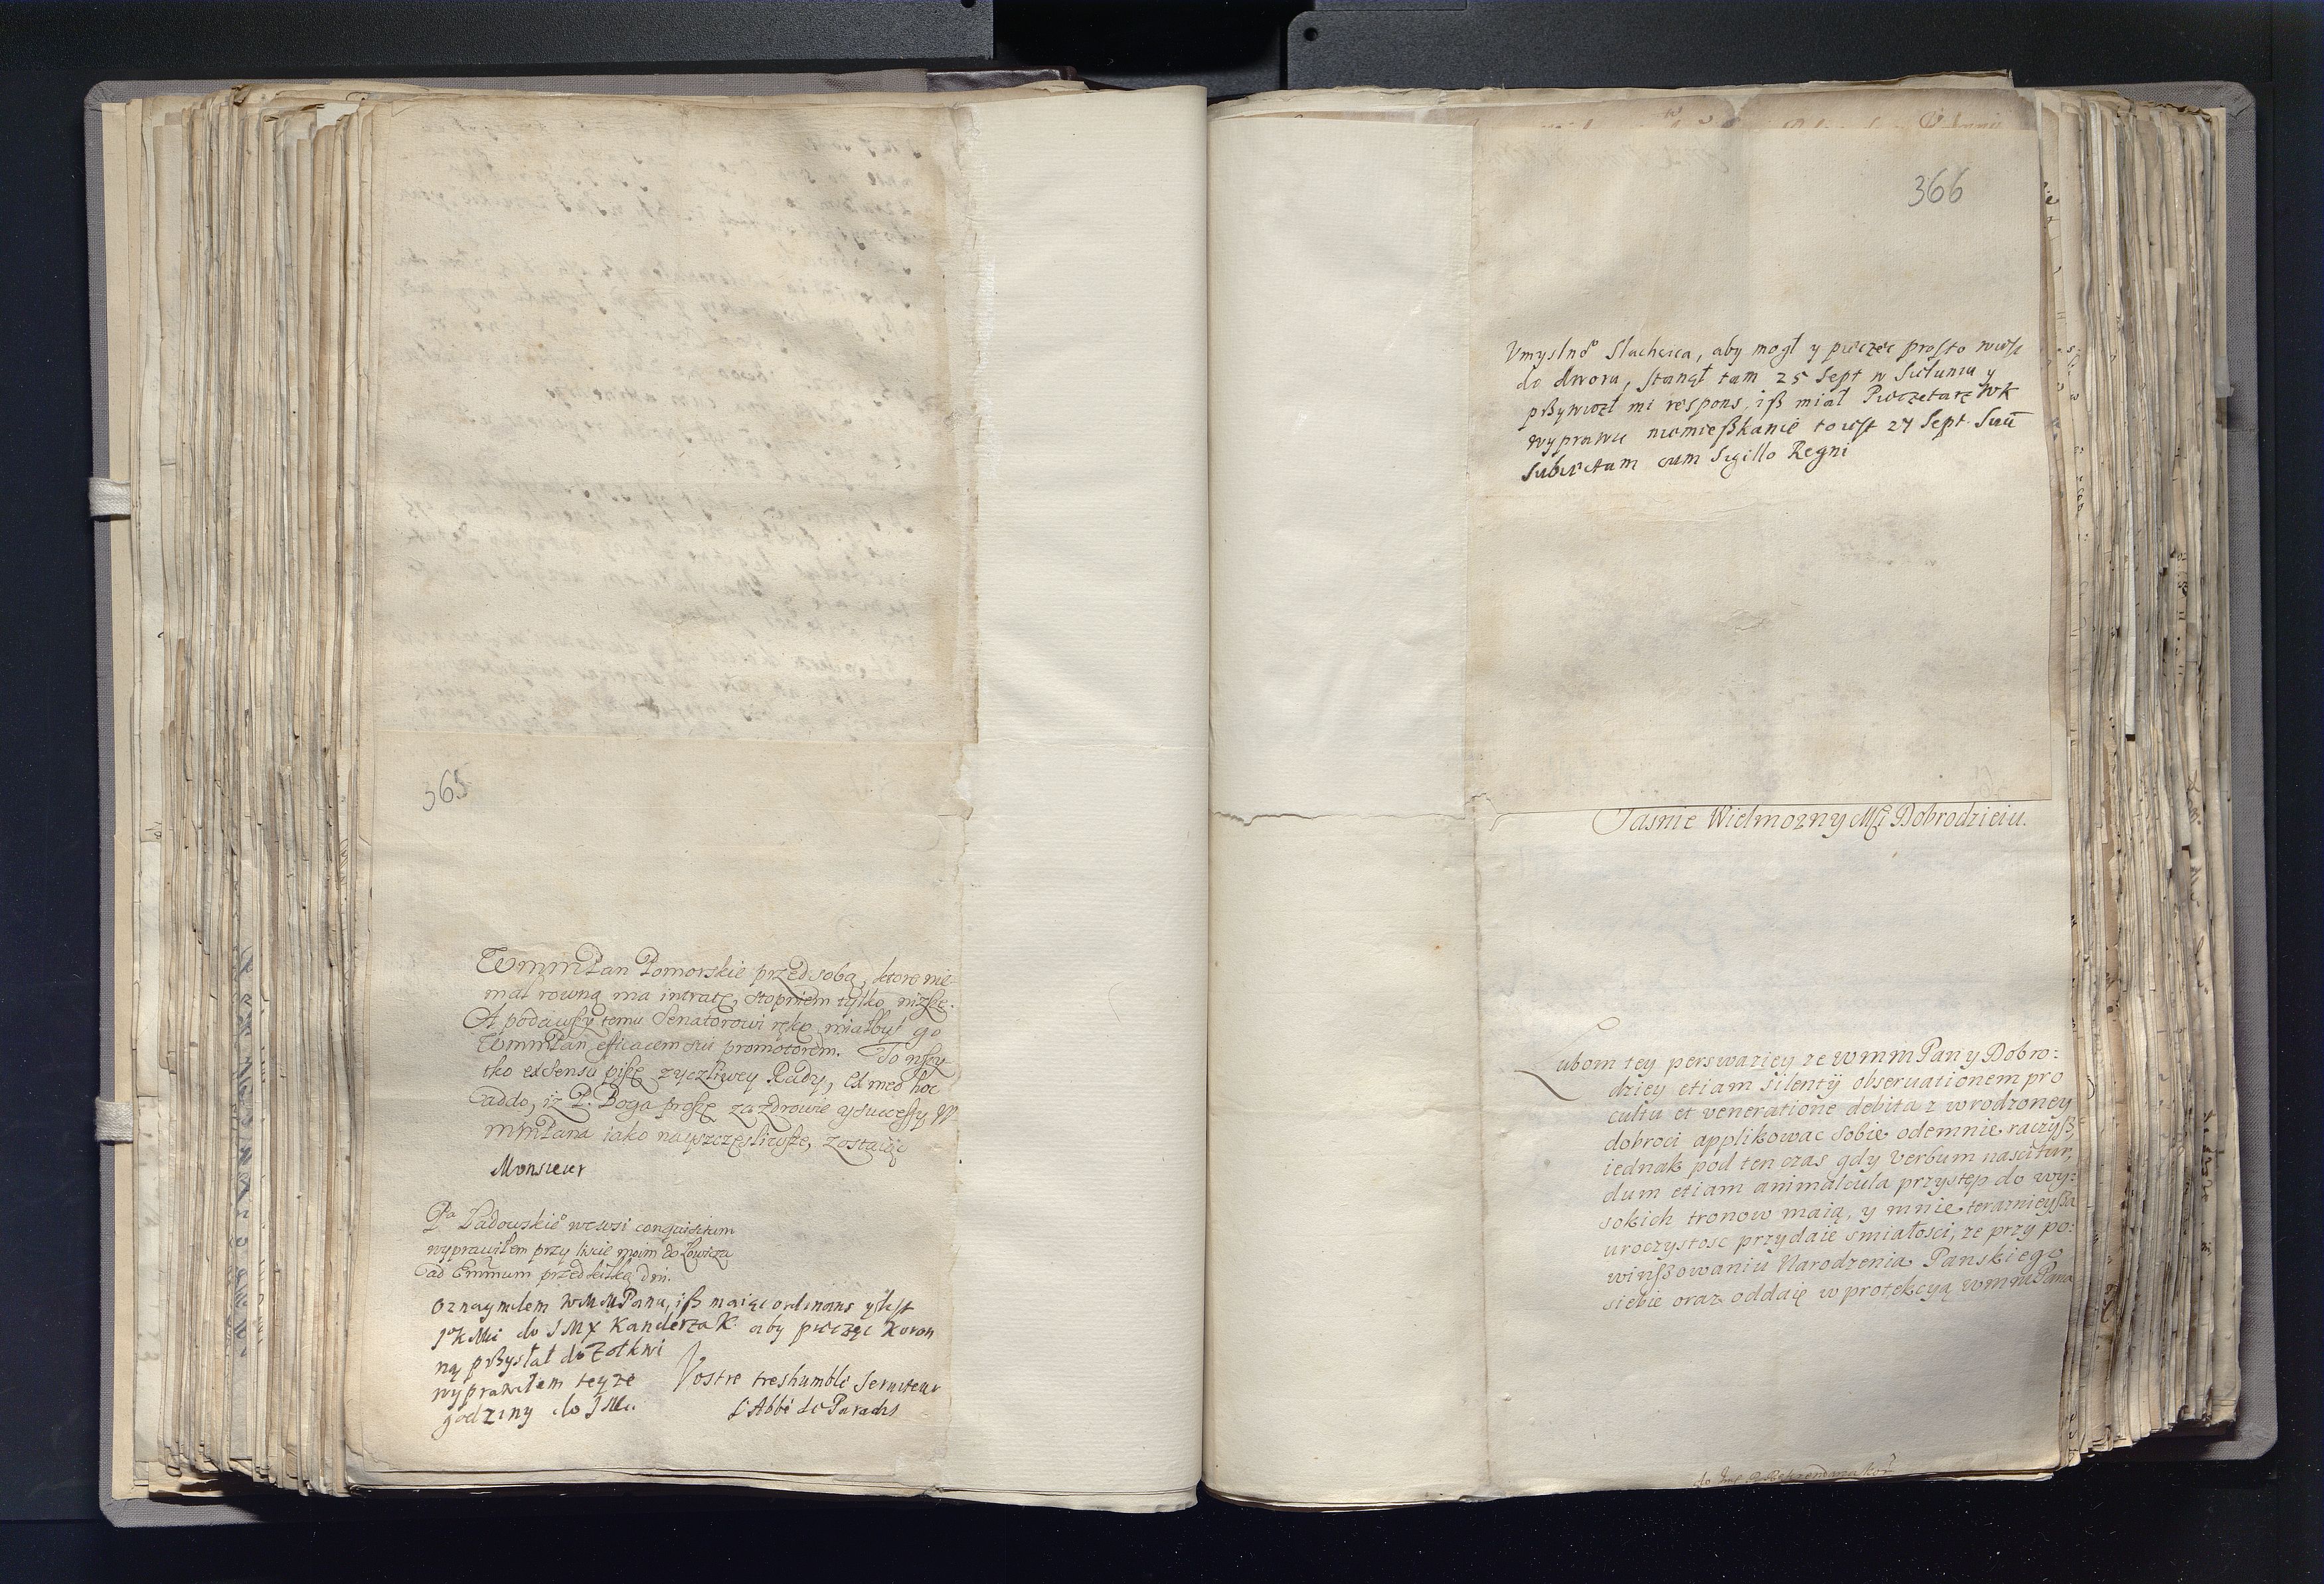 365
WmmPan Pomorskie przed sobą, ktore nie-
mal rowną ma intratę, stopniem tylko niższe.
A podawszy temu Senatorowi rękę miałbyś go
WmmPan efficacem sui promotorem. To wszy
tko ex sensu piszę zyczliwey Rady, et meo hoc
addo, iz P. Boga proszę za zdrowie y successy W
mmPana iako nayszczęsliwsze, zostaiąc
Monsieur
Pa Ladowskiego we wsi conquisitum
wyprawiłem przy liscie moim do Łowicza
ad Emmum przed kilką dni.
Oznaymilem WMMPanu, iß maiąc ordinans y list
JoKMci do JMX Kanclerza K. aby pieczęć Koron
ną przysłał do Zołkwi
wyprawiłem teyze
godziny do JMci
Vostre treshumble Serviteur
L'Abbé de Paradis
366
Vmyslnego Slachcica, aby mogł y pieczęć prosto wiesc
do dworu, stanął tam 25 Sept w Sieluniu y
przywiozł mi respons, iß miał Pieczętarz WK
wyprawić niemießkanie to iest 27 Sept Suum
Subiectum cum Sigillo Regni
Jasnie Wielmozny Msci Dobrodzieiu.
Lubom tey perswaziey ze WmmPan y Dobro-
dziey etiam silentij observationem pro
cultu et veneratione debita z wrodzoney
dobroci applikowac sobie odemnie raczyß,
iednak pod ten czas gdy verbum nascitur,
dum etiam animalcula przystęp do wy-
sokich tronow maią, y mnie teraznieyßa
uroczystosc przydaie smiałosci, ze przy po-
winßowaniu Narodzenia Panskiego
siebie oraz oddaię w protekcyą WmmPana
do Jmci P. Referendarza Kor